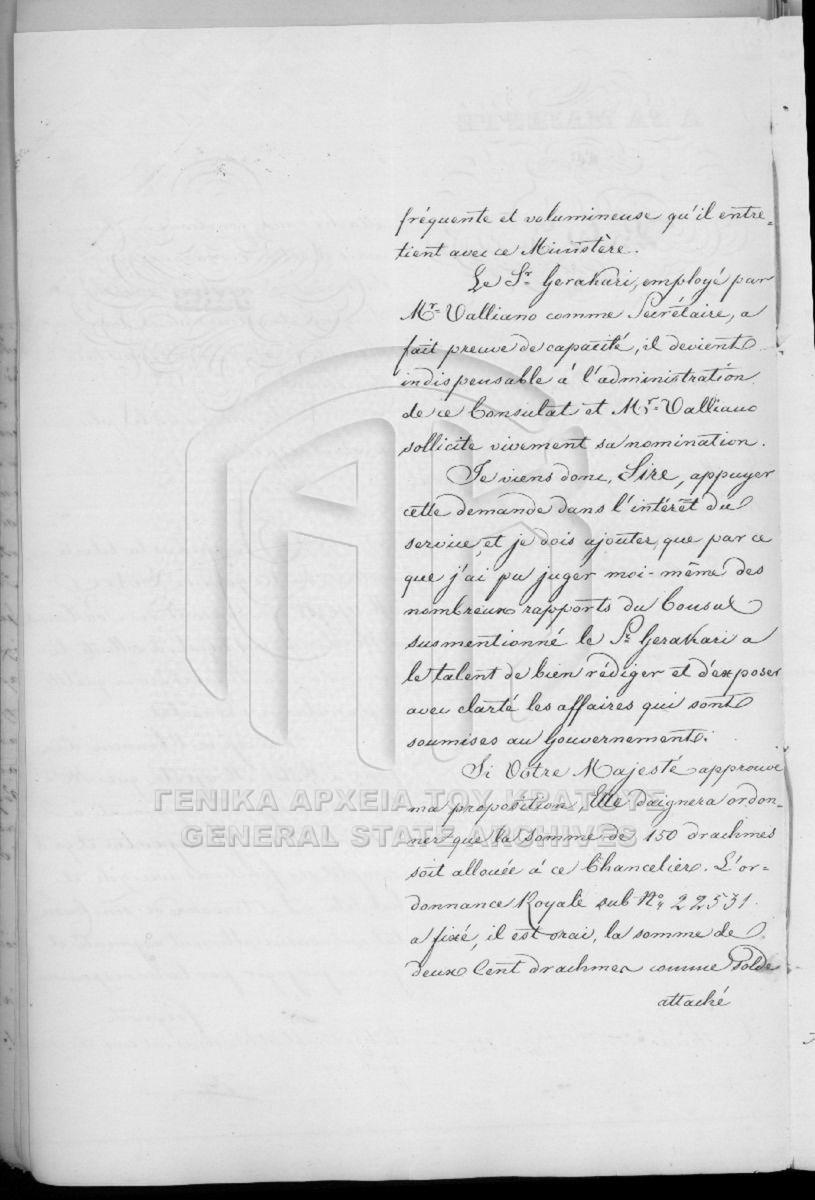 fréquente et volumineuse qu'il entre=
tient avec ce Ministère.
Le Sr. Gerakari, employé par
Mr. Valliano comme Secrétaire, a
fait preuve de capacité, il devient
indispensable à l'administration
de ce Consulat et Mr. Valliano
sollicite vivement sa nomination.
Je viens donc, Sire, appuyer
cette demande dans l'intérêt du
service, et je dois ajouter, que par ce
que j'ai pu juger moi-même des
nombreux rapports du Consul
susmentionné le Sr. Gerakari a
le talent de bien rédiger et d'exposer
avec clarté les affaires qui sont
soumises au Gouvernement.
Si Votre Majesté approuve
ΓΕΝΙΚΑ ΑΡΧΕΙΑ ΤΟΥ ΚΡΑΤΟΥΣ
ma proposition, Elle daignera ordon-
GENERAL STATE ARCHIVES
ner que la somme de 150 drachmes
soit allouée à ce Chancelier. L'or-
donnance Royale sub No. 22531.
a fixé, il est vrai, la somme de
deux Cent drachmes comme Solde
attaché